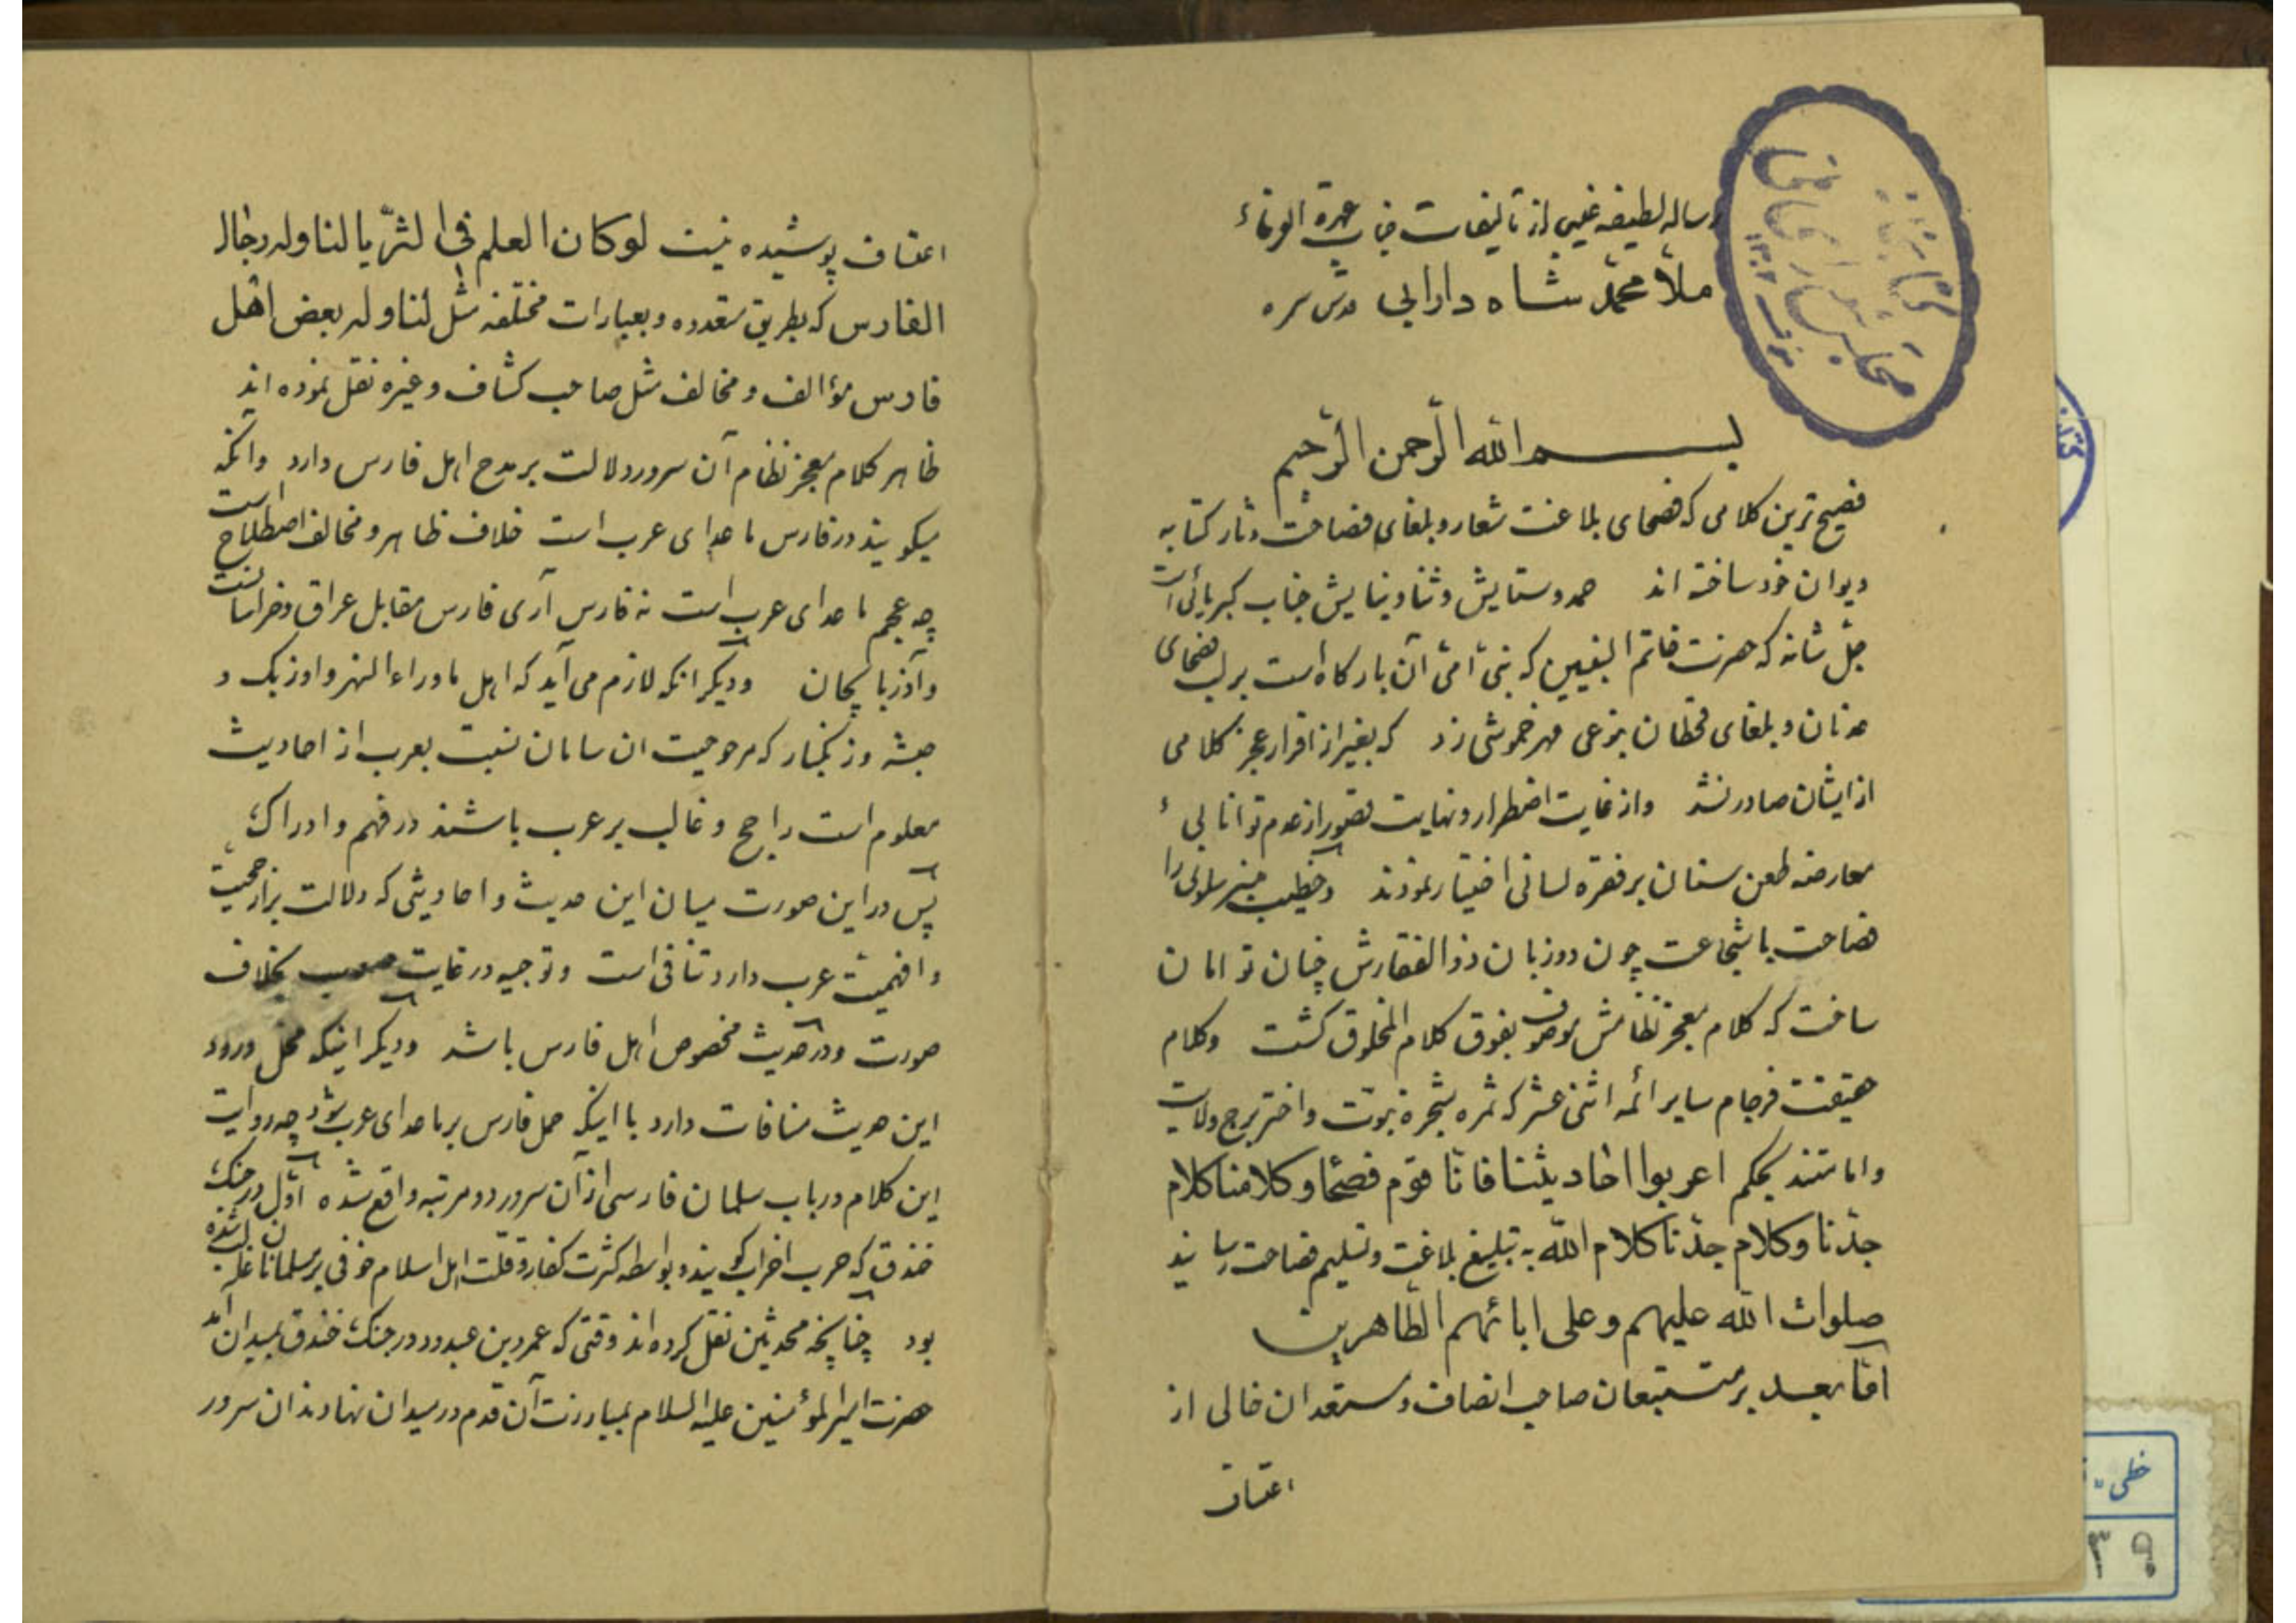 رساله لطیفه غیبی از تألیفات جناب عمدة العرفاء
ملا محمد شاه دارابی قدس سره
بسم الله الرحمن الرحیم
فصیح ترین کلامی که فصحای بلاغت شعار و بلغای فصاحت دثار کتابه
دیوان خود ساخته اند حمد و ستایش و ثنا و نیایش جناب کبریائی است
جل شانه که حضرت خاتم النبیین که نبی امی آن بارگاه است بر لب فصحای
عدنان و بلغای قحطان بنوعی مهر خموشی زد که بغیر از اقرار عجز کلامی
از ایشان صادر نشد و از غایت اضطرار و نهایت قصور از عدم توانایی
معارضه طعن سنان بر فقره لسانی اختیار نمودند و خطیب منبر سلونی را
فصاحت با شجاعت چون دو زبان ذوالفقارش چنان توامان
ساخت که کلام معجز نظامش موصوف بفوق کلام المخلوق گشت و کلام
حقیقت فرجام سایر ائمه اثنی عشر که ثمره شجره نبوت و اختر برج ولایت
و امامتند بحکم اعربوا احادیثنا فانا قوم فصحا و کلامنا کلام
جدنا و کلام جدنا کلام الله به تبلیغ بلاغت و تسلیم فصاحت رسانید
صلوات الله علیهم و علی ابائهم الطاهرین
اما بعد بر متتبعان صاحب انصاف و مستعدان خالی از
اعتساف
اعتساف پوشیده نیست لو کان العلم فی الثریا لناوله رجال
الفارس که بطریق متعدده و بعبارات مختلفه مثل لناوله بعض اهل
فارس مؤالف و مخالف مثل صاحب کشاف و غیره نقل نموده اند
ظاهر کلام معجز نظام آن سرور دلالت بر مدح اهل فارس دارد و آنکه
میگویند در فارس ماعدای عرب است خلاف ظاهر و مخالف اصطلاح است
چه عجم ماعدای عرب است نه فارس آری فارس مقابل عراق و خراسانست
و آذربایجان و دیگر انکه لازم می آید که اهل ماوراء النهر و اوزبک و
حبشه و زنگبار که مرجوحیت ان سامان نسبت بعرب از احادیث
معلوم است راجح و غالب بر عرب باشند در فهم و ادراک
پس در این صورت میان این حدیث و احادیثی که دلالت بر ارجحیت
و افهمیت عرب دارد تنافی است و توجیه در غایت صعب بخلاف
صورت و در حدیث مخصوص اهل فارس باشد و دیگر اینکه محل ورود
این حدیث منافات دارد با اینکه حمل فارس بر ماعدای عرب شود چه روایت
این کلام در باب سلمان فارسی از آن سرور دو مرتبه واقع شده اول در جنک
خندق که حرب احزاب گویند و بواسطه کثرت کفار و قلت اهل اسلام خوفی بر مسلمانان غالب شده
بود چنانچه محدثین نقل کرده اند وقتی که عمرو بن عبدود در جنک خندق بمیدان آمد
حضرت امیر المؤمنین علیه السلام بمبارزت آن قدم در میدان نهادند ان سرور
خطی
۳۹